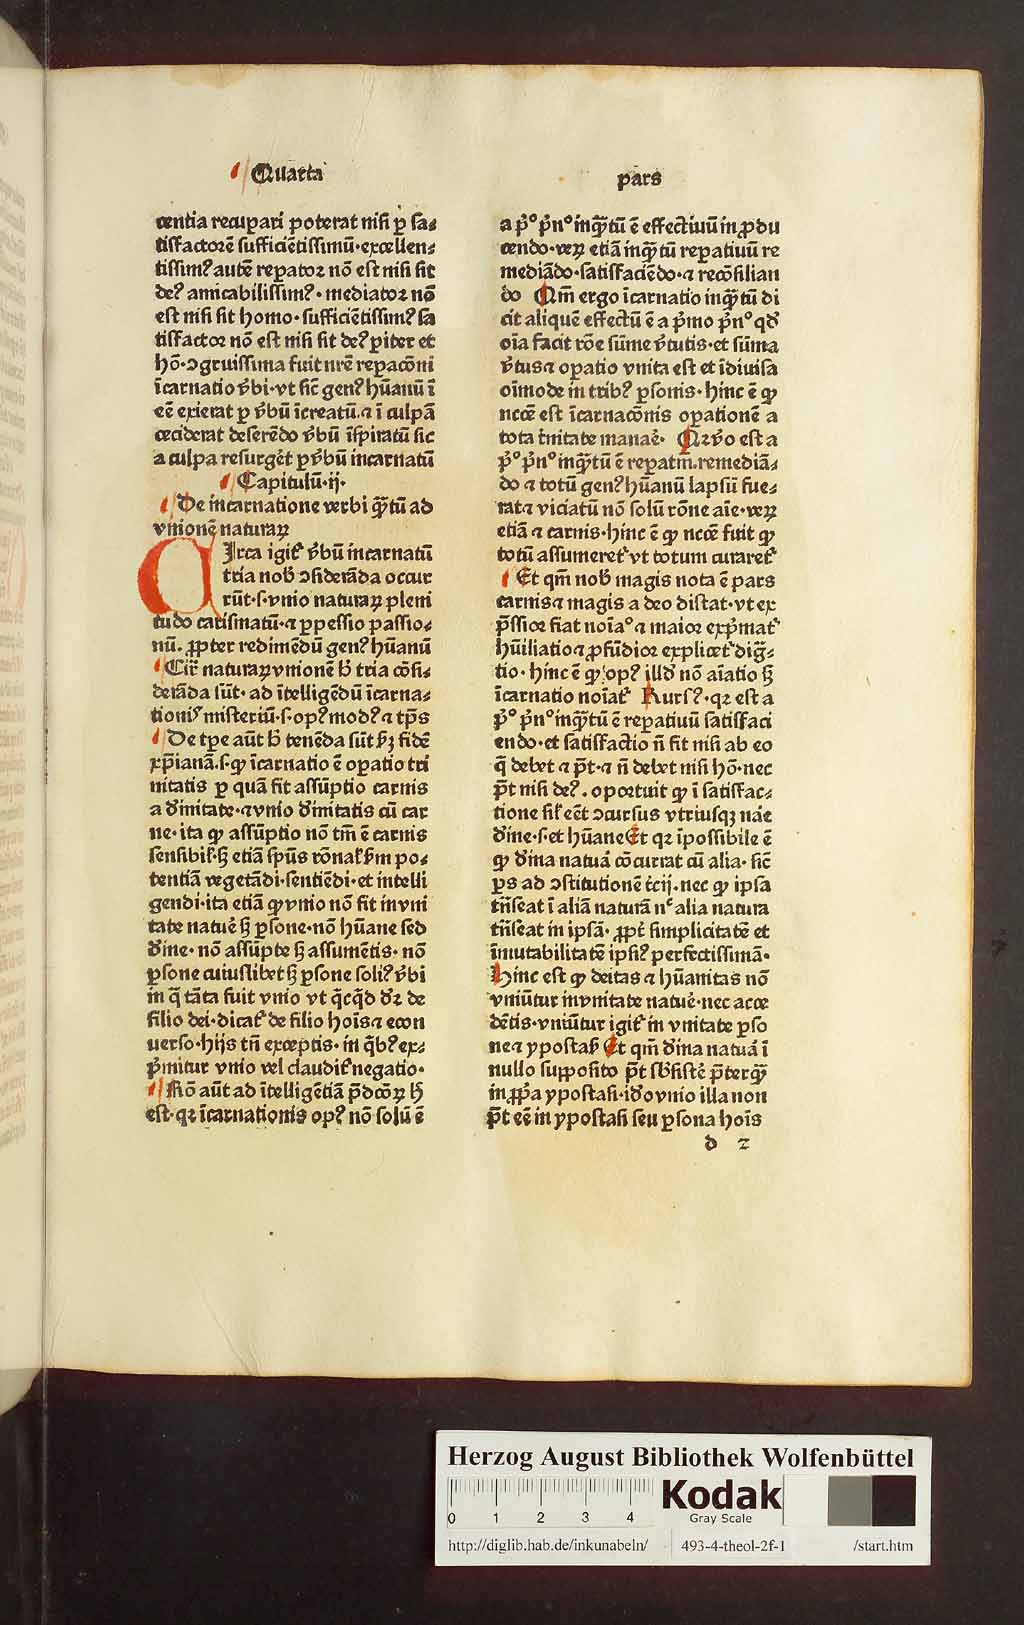 Quarta
pars
centia recuparī poterat nisi ꝑ sa⸗
tisfactorē sufficiētissimū·excellen⸗
tissimꝰ autē reꝑator nō est nisi sit
deꝰ amicabilissimꝰ· mediator nō
est nisi sit homo·sufficiētissimꝰ sa
tisfactor nō est nisi sit deꝰ ꝑiter et
hō·ↄgruissima fuit nr̄e reꝑacōni
īcarnatio v̄bi·vt sic̄ genꝰ hūanū ī
eē exierat ꝑ v̄bū īcreatū.⁊ ī culpā
ceciderat deserēdo v̄bū īspiratū sic
a culpa resurget̄ ꝑ v̄bū incarnatū
Capitulū·ij·
De incarnatione verbi q̄ꝫtū ad
vnionē naturaꝝ
CIrca igit᷑ v̄bū incarnatū
tria nob̄ ↄsiderāda occur
rūt·s·vnio naturaꝝ pleni
tudo carismatū·⁊ ꝑpessio passio⸗
nū· ꝓpter redimēdū genꝰ hūanū
Cir̄ naturaꝝ vnionē h̄ tria cōsi⸗
derāda sūt· ad ītelligēdū īcarna⸗
tionꝭ misteriū·s·opꝰ modꝰ ⁊ tp̄s
De tpe aūt h̄ tenēda sūt ẜꝫ fidē
xp̄ianā.s·ꝙ īcarnatio ē oꝑatio tri
nitatis ꝑ quā fit assūptio carnis
a diuinitate·⁊vnio diuinitatis cū car
ne·ita ꝙ assūptio nō tm̄ ē carnis
sensibil·sꝫ etiā sp̄us rōnal ẜm po⸗
tentiā vegetādi·sentiēdi·et intelli
gendi·ita etiā ꝙvnio nō fit in vni
tate nature sꝫ ꝑsone·nō hūane sed
diuine·nō assūpte sꝫ assumētis·nō
ꝑsone cuiuslibet sꝫ ꝑsone soliꝰ v̄bi
in q̄ tāta fuit vnio vt q̄cq̄d dꝛ de
filio dei·dicat᷑ de filio hoīs⁊ econ
uerso·hijs tn̄ exceptis· in q̄bꝰ ex⸗
p̄mitur vnio vel claudit᷑ negatio·
Rō aūt ad ītelligētiā p̄dcōꝝ h̄
est·qꝛ īcarnationis opꝰ nō solū ē
a p̄º pn̄º inq̄ꝫtū ē effectiuū in ꝓdu
cendo·veꝝ etiā inq̄ꝫtū reꝑatiuū re
mediādo·satisfaciēdo·⁊ recōsilian
do Qm̄ ergo īcarnatio inq̄ꝫtū di
cit aliquē effectū ē a p̄mo pn̄º qd̄
oīa facit rōe sūme v̄tutis·et sūma
v̄tus⁊ oꝑatio vnita est et īdiuisa
oīmode in tribꝰ ꝑsonis·hinc ē ꝙ
necē est īcarnacōnis oꝑationē a
tota t̄nitate manare· Qꝛ v̄o est a
p̄º pn̄º inq̄ꝫtū ē reꝑatm̄.remediā⸗
do ⁊ totū genꝰ hūanū lapsū fue⸗
rat⁊ viciatū nō solū rōne aīe·veꝝ
etiā ⁊ carnis·hinc ē ꝙ necē fuit ꝙ
totū assumeret᷑ vt totum curaret᷑
Et qm̄ nob̄ magis nota ē pars
carnis⁊ magis a deo distat·vt ex
p̄ssior fiat noīaº ⁊ maior exp̄mat᷑
hūiliatio⁊ ꝓfūdior explicet᷑ diḡ⸗
tio·hinc ē ꝙ opꝰ illd̄ nō aīatio sꝫ
īcarnatio noīat᷑ Rursꝰ·qꝛ est a
p̄º pn̄º inq̄ꝫtū ē reꝑatiuū satisfaci
endo·et satisfactio n̄ fit nisi ab eo
q̄ debet ⁊ p̄t·⁊ n̄ debet nisi hō·nec
p̄t nisi deꝰ·oportuit ꝙ ī satisfac⸗
tione sil eēt ↄcursus vtriusqꝫ nāe
diuine·s·et hūane Et qꝛ īpossibile ē
ꝙ diuina natura cōcurrat cū alia·sic̄
ꝑs ad ↄstitutionē t̄cij.nec ꝙ ipsa
trn̄seat ī aliā naturā nᶜ alia natura
trn̄seat in ipsā·ꝓpt̄ simplicitatē et
īmutabilitatē ipsiꝰ perfectissimā·
Hinc est ꝙ deitas ⁊ hūanitas nō
vniūtur in vnitate nature·nec acce
dētis·vniūtur igit᷑ in vnitate ꝑso
ne⁊ ypostasis Et qm̄ diuina natura ī
nullo supposito p̄t sb̄siste̅ p̄terq̄ꝫ
in ꝓpa ypostasi·ido vnio illa non
p̄t eē in ypostasi seu ꝑsona hoīs
d 2
Herzog August Bibliothek Wolfenbüttel
0 1 2 3 4
Kodak
Gray Scale
http://diglib.hab.de/inkunabeln/ 493-4-theol-2f-1 /start.htm